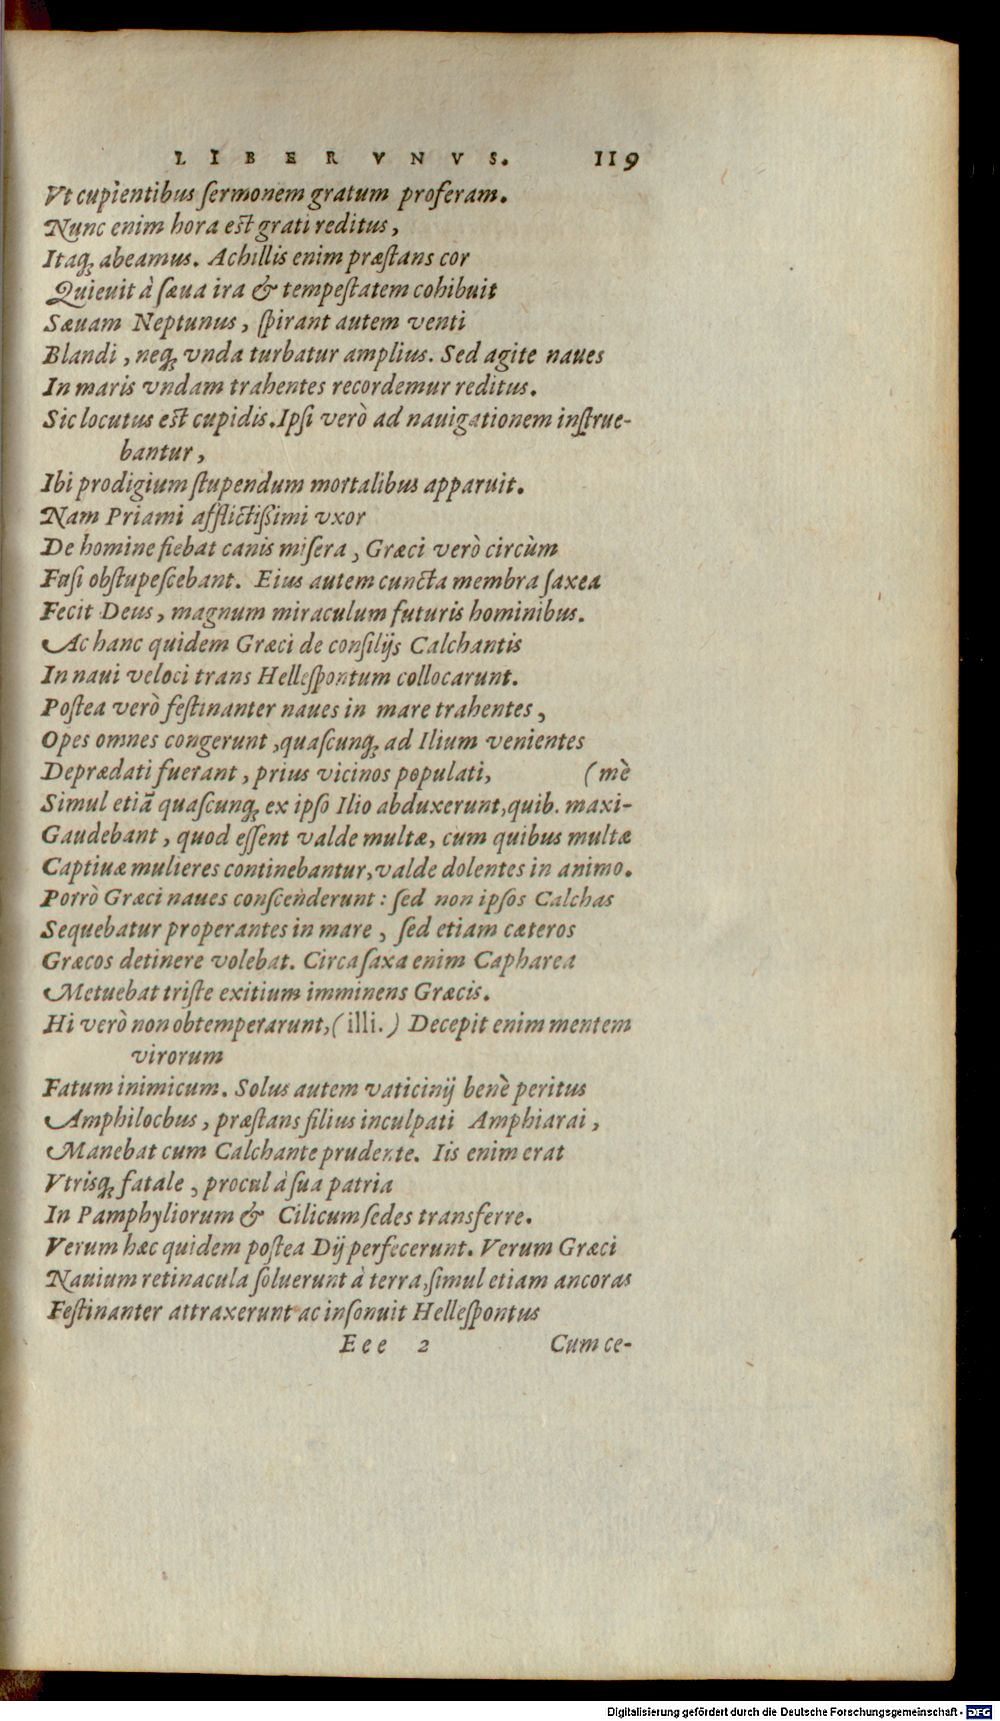 LIBER VNVS. 119
Vt cupientibus ſermonem gratum proferam.
Nunc enim hora eſt grati reditus,
Itaq́; abeamus. Achillis enim præſtans cor
Quieuit à ſæua ira & tempeſtatem cohibuit
Sæuam Neptunus, ſpirant autem venti
Blandi, neq́; vnda turbatur amplius. Sed agite naues
In maris vndam trahentes recordemur reditus.
Sic locutus eſt cupidis. Ipſi verò ad nauigationem inſtrue-
bantur,
Ibi prodigium ſtupendum mortalibus apparuit.
Nam Priami afflictißimi vxor
De homine fiebat canis miſera, Græci verò circùm
Fuſi obſtupeſcebant. Eius autem cuncta membra ſaxea
Fecit Deus, magnum miraculum futuris hominibus.
Ac hanc quidem Græci de conſilijs Calchantis
In naui veloci trans Helleſpontum collocarunt.
Poſtea verò feſtinanter naues in mare trahentes,
Opes omnes congerunt, quaſcunq́; ad Ilium venientes
Deprædati fuerant, prius vicinos populati, (mè
Simul etiã quaſcunq́; ex ipſo Ilio abduxerunt, quib. maxi-
Gaudebant, quod eſſent valde multæ, cum quibus multæ
Captiuæ mulieres continebantur, valde dolentes in animo.
Porrò Græci naues conſcenderunt: ſed non ipſos Calchas
Sequebatur properantes in mare, ſed etiam cæteros
Græcos detinere volebat. Circa ſaxa enim Capharea
Metuebat triſte exitium imminens Græcis.
Hi verò non obtemperarunt, (illi.) Decepit enim mentem
virorum
Fatum inimicum. Solus autem vaticinij benè peritus
Amphilochus, præſtans filius inculpati Amphiarai,
Manebat cum Calchante prudente. Iis enim erat
Vtrisq́; fatale, procul à ſua patria
In Pamphyliorum & Cilicum ſedes transferre.
Verum hæc quidem poſtea Dij perfecerunt. Verum Græci
Nauium retinacula ſoluerunt à terra, ſimul etiam ancoras
Feſtinanter attraxerunt ac inſonuit Helleſpontus
Eee 2 Cum ce-
Digitalisierung gefördert durch die Deutsche Forschungsgemeinschaft - DFG